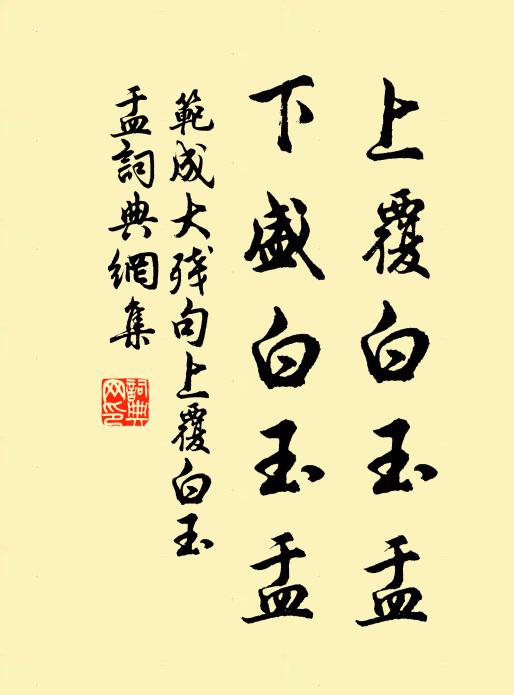 上覆白玉盂
下盛白玉盂
範成大残句上覆白玉
盂詞典網集
詞典网印